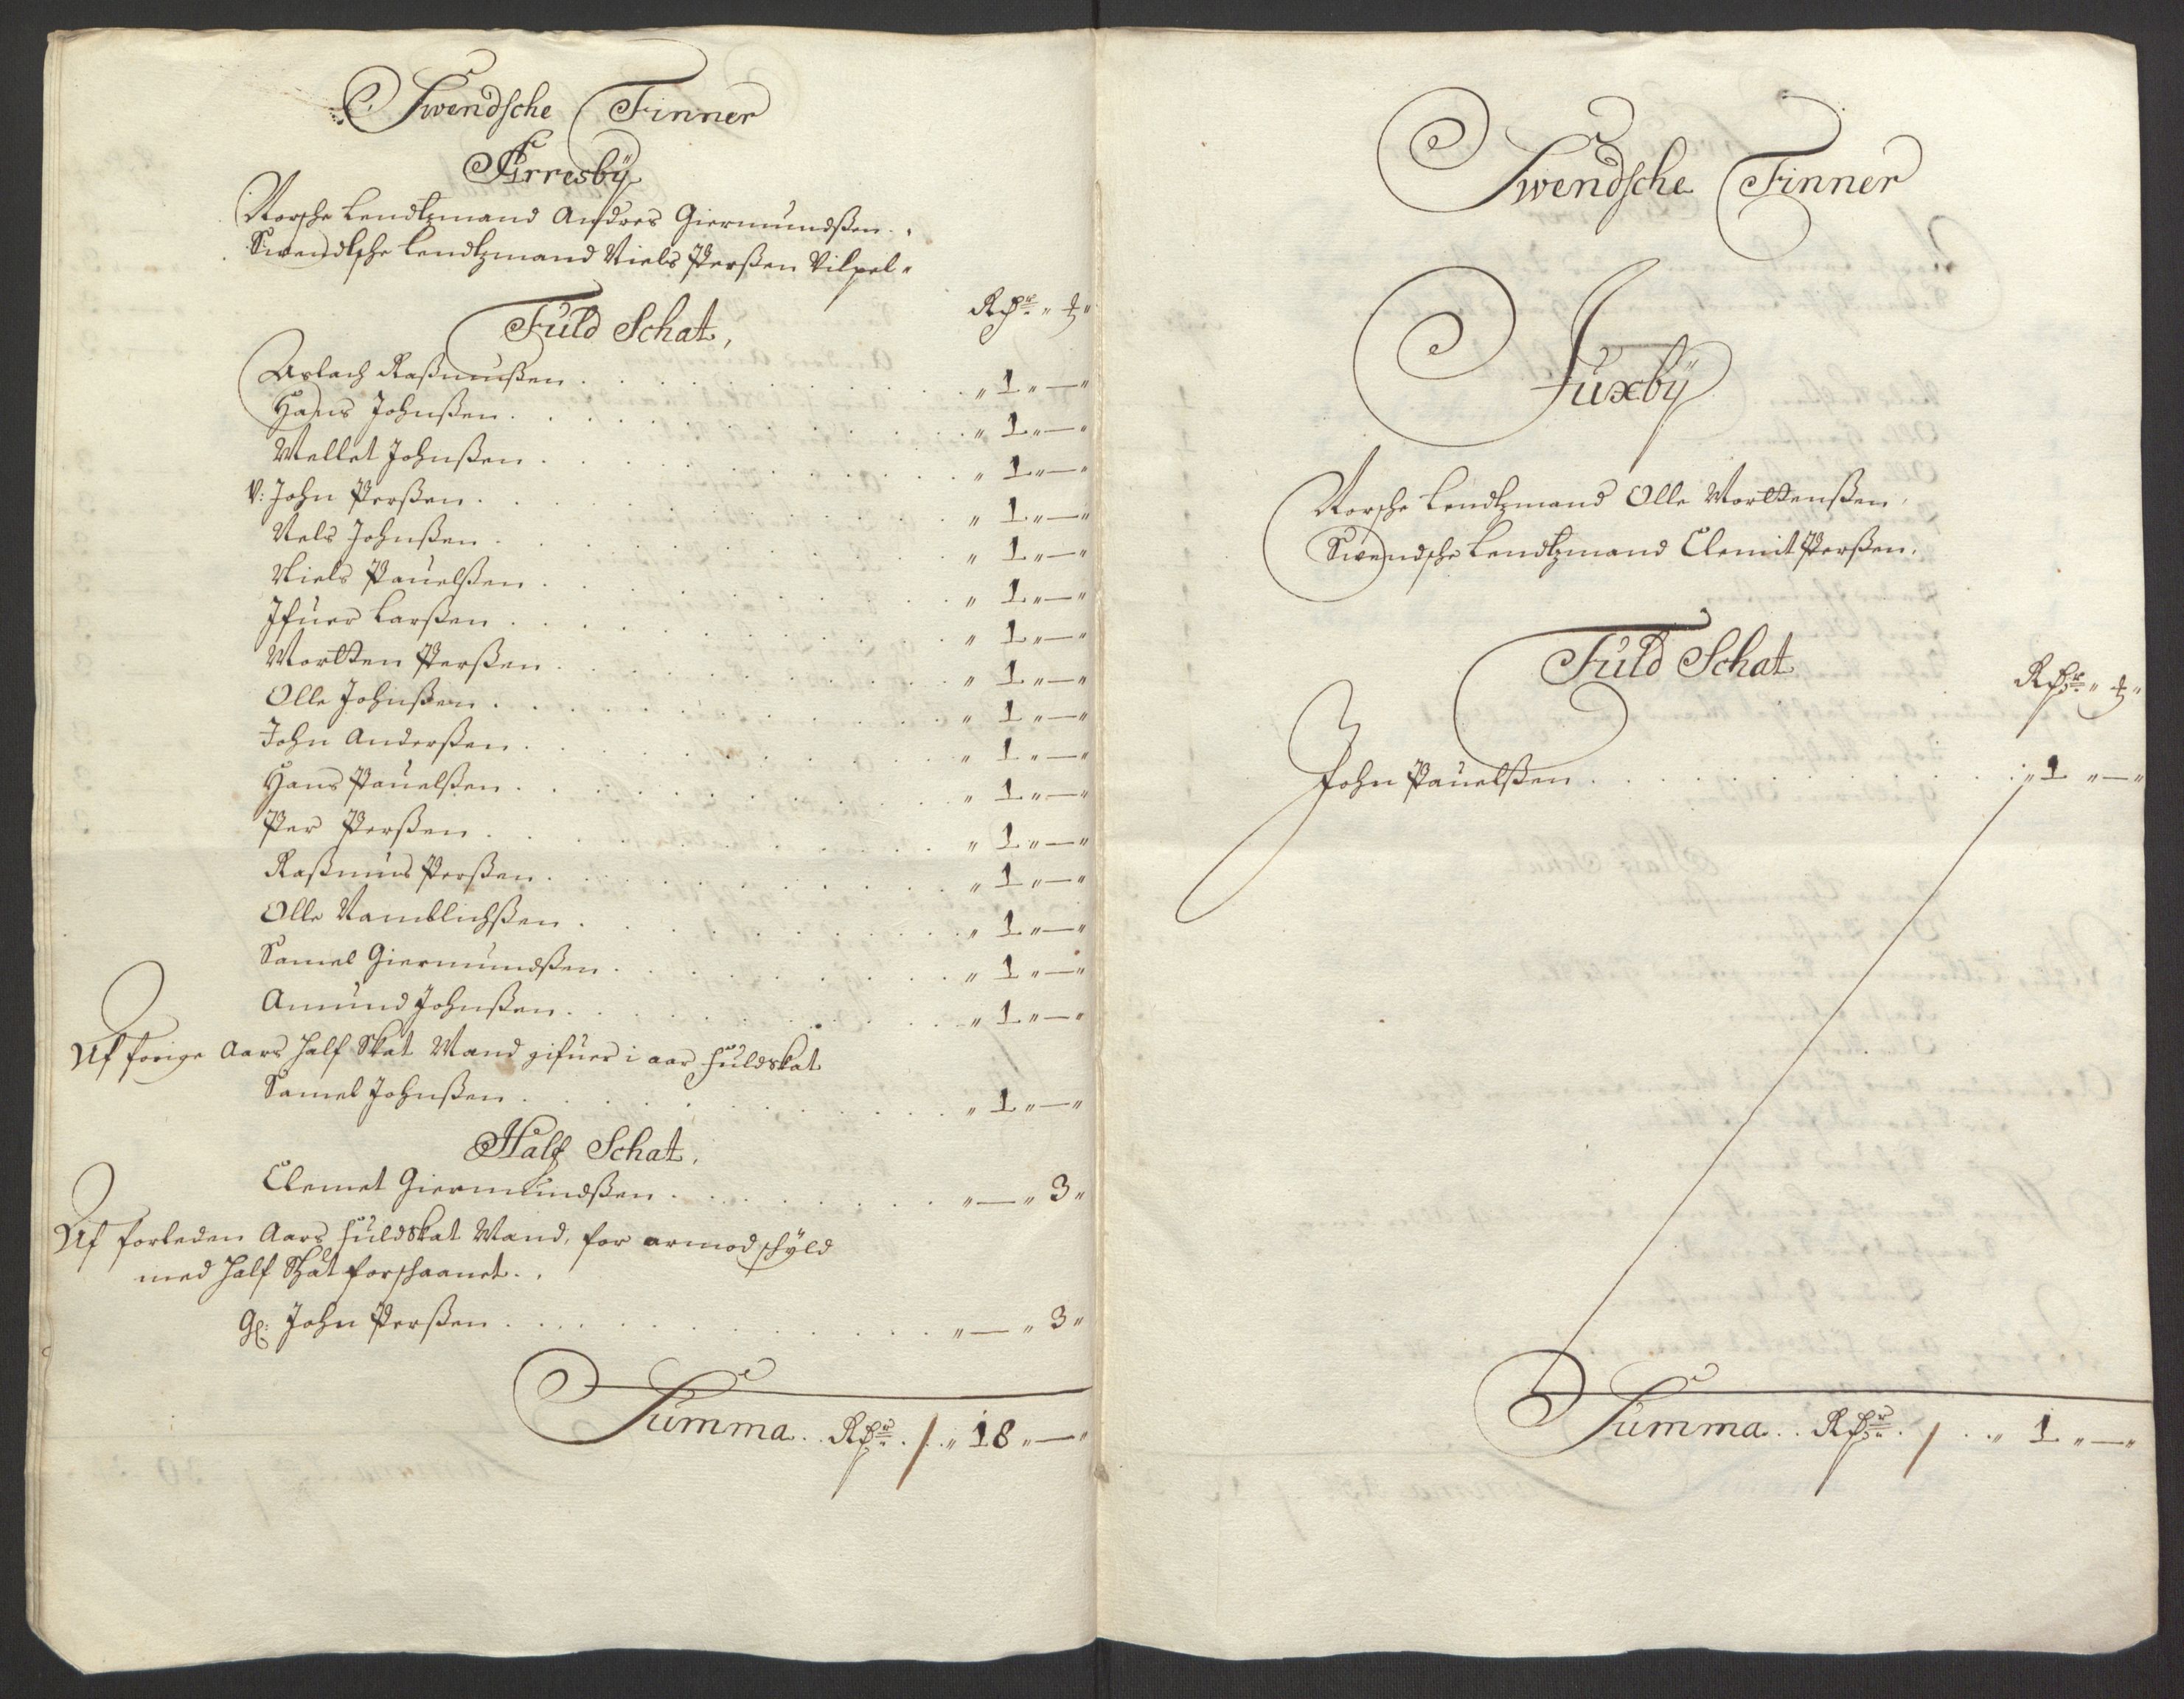 Swendsche Finner
Arresbÿ
Norsche Lendtzmand Andres Giermundßen
Swendtsche Lendtzmand Niels Perßen Vilpel
Fuld Schat,
Aslach Raßmußen . . . „ 1 „ — „
Hans Johnßen . . . „ 1 „ — „
Mellet Johnßen . . . „ 1 „ — „
V: John Perßen . . . „ 1 „ — „
Nels Johnßen . . . „ 1 „ — „
Niels Pauelßen . . . „ 1 „ — „
Ifuer Larßen . . . „ 1 „ — „
Mortten Perßen . . . „ 1 „ — „
Olle Johnßen . . . „ 1 „ — „
John Anderßen . . . „ 1 „ — „
Hans Pauelßen . . . „ 1 „ — „
Per Perßen . . . „ 1 „ — „
Raßmus Perßen . . . „ 1 „ — „
Olle Namblichßen . . . „ 1 „ — „
Samel Giermundßen . . . „ 1 „ — „
Amund Johnßen . . . „ 1 „ — „
Af forige Aars half Skat Mand gifuer i aar fuldskat
Samel Johnßen . . . „ 1 „ — „
Half Schat,
Clemet Giermundßen . . . „ — „ 3 „
Af forleden Aars fuldskat Mand, for armod schÿld
med half Skat forschaanet.
Gl: John Perßen . . . „ — „ 3 „
Summa . . . „ 18 „ — „
Swendsche Finner
Juxbÿ
Norsche Lendtzmand Olle Morttenßen,
Swendsche Lendtzmand Clemit Perßen,
Fuld Schat
John Pauelßen . . . „ 1 „ — „
Summa . . . „ 1 „ — „